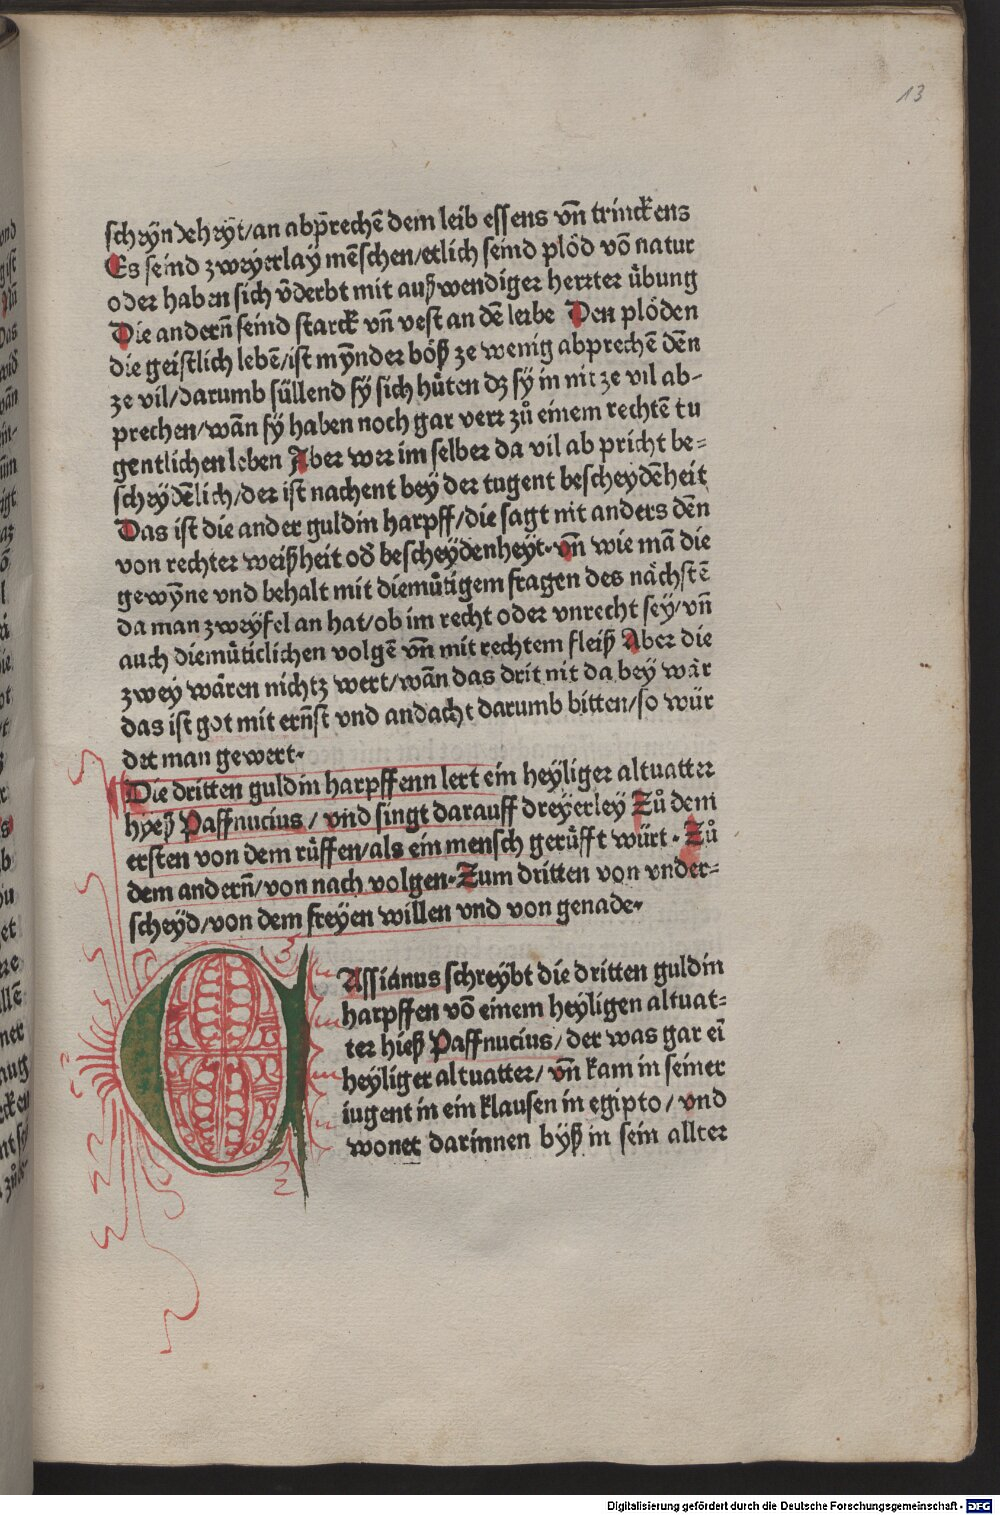 13
scheyndeheyt/an abprechē dem leib essens vn̄ trinckens
Es seind zweyerlay mēschen/etlich seind plöd vō natur
oder haben sich v̄derbt mit außwendiger herter übung
Die andern̄ seind starck vn̄ vest an dē leibe Den plöden
die geistlich lebē/ist mȳnder böß ze wenig abprechē dēn
ze vil/darumb süllend sÿ sich hüten dz sÿ in nit ze vil ab-
prechen/wān sÿ haben noch gar verr zů einem rechtē tu
gentlichen leben Aber wer im selber da vil ab pricht be=
scheydēlich/der ist nachent beÿ der tugent bescheydēheit
Das ist die ander guldin harpff/die sagt nit anders dēn
von rechter weißheit od̄ bescheydenheyt·vn̄ wie mā die
gewȳne vnd behalt mit diemütigem fragen des nächstē
da man zweyfel an hat/ob im recht oder vnrecht seÿ/vn̄
auch diemüticlichen volgē vn̄ mit rechtem fleiß Aber die
zwey wären nichtz wert/wān das drit nit da beÿ wär
das ist got mit ern̄st vnd andacht darumb bitten/so wür
det man gewert·
Die dritten guldin harpffenn lert ein heyliger altuatter
hyeß Paffnucius/vnd singt darauff dreyerley Zů dem
ersten von dem rüffen/als ein mensch gerüfft würt·Zů
dem andern̄/von nach volgen·Zum dritten von vnder=
scheyd/von dem freyen willen vnd von genade·
CAssianus schreybt die dritten guldin
harpffen vō einem heyligen altuat=
ter hieß Paffnucius/der was gar eī
heyliger altuatter/vn̄ kam in seiner
iugent in ein klausen in egipto/vnd
wonet darinnen byß in sein allter
Digitalisierung gefördert durch die Deutsche Forschungsgemeinschaft - DFG